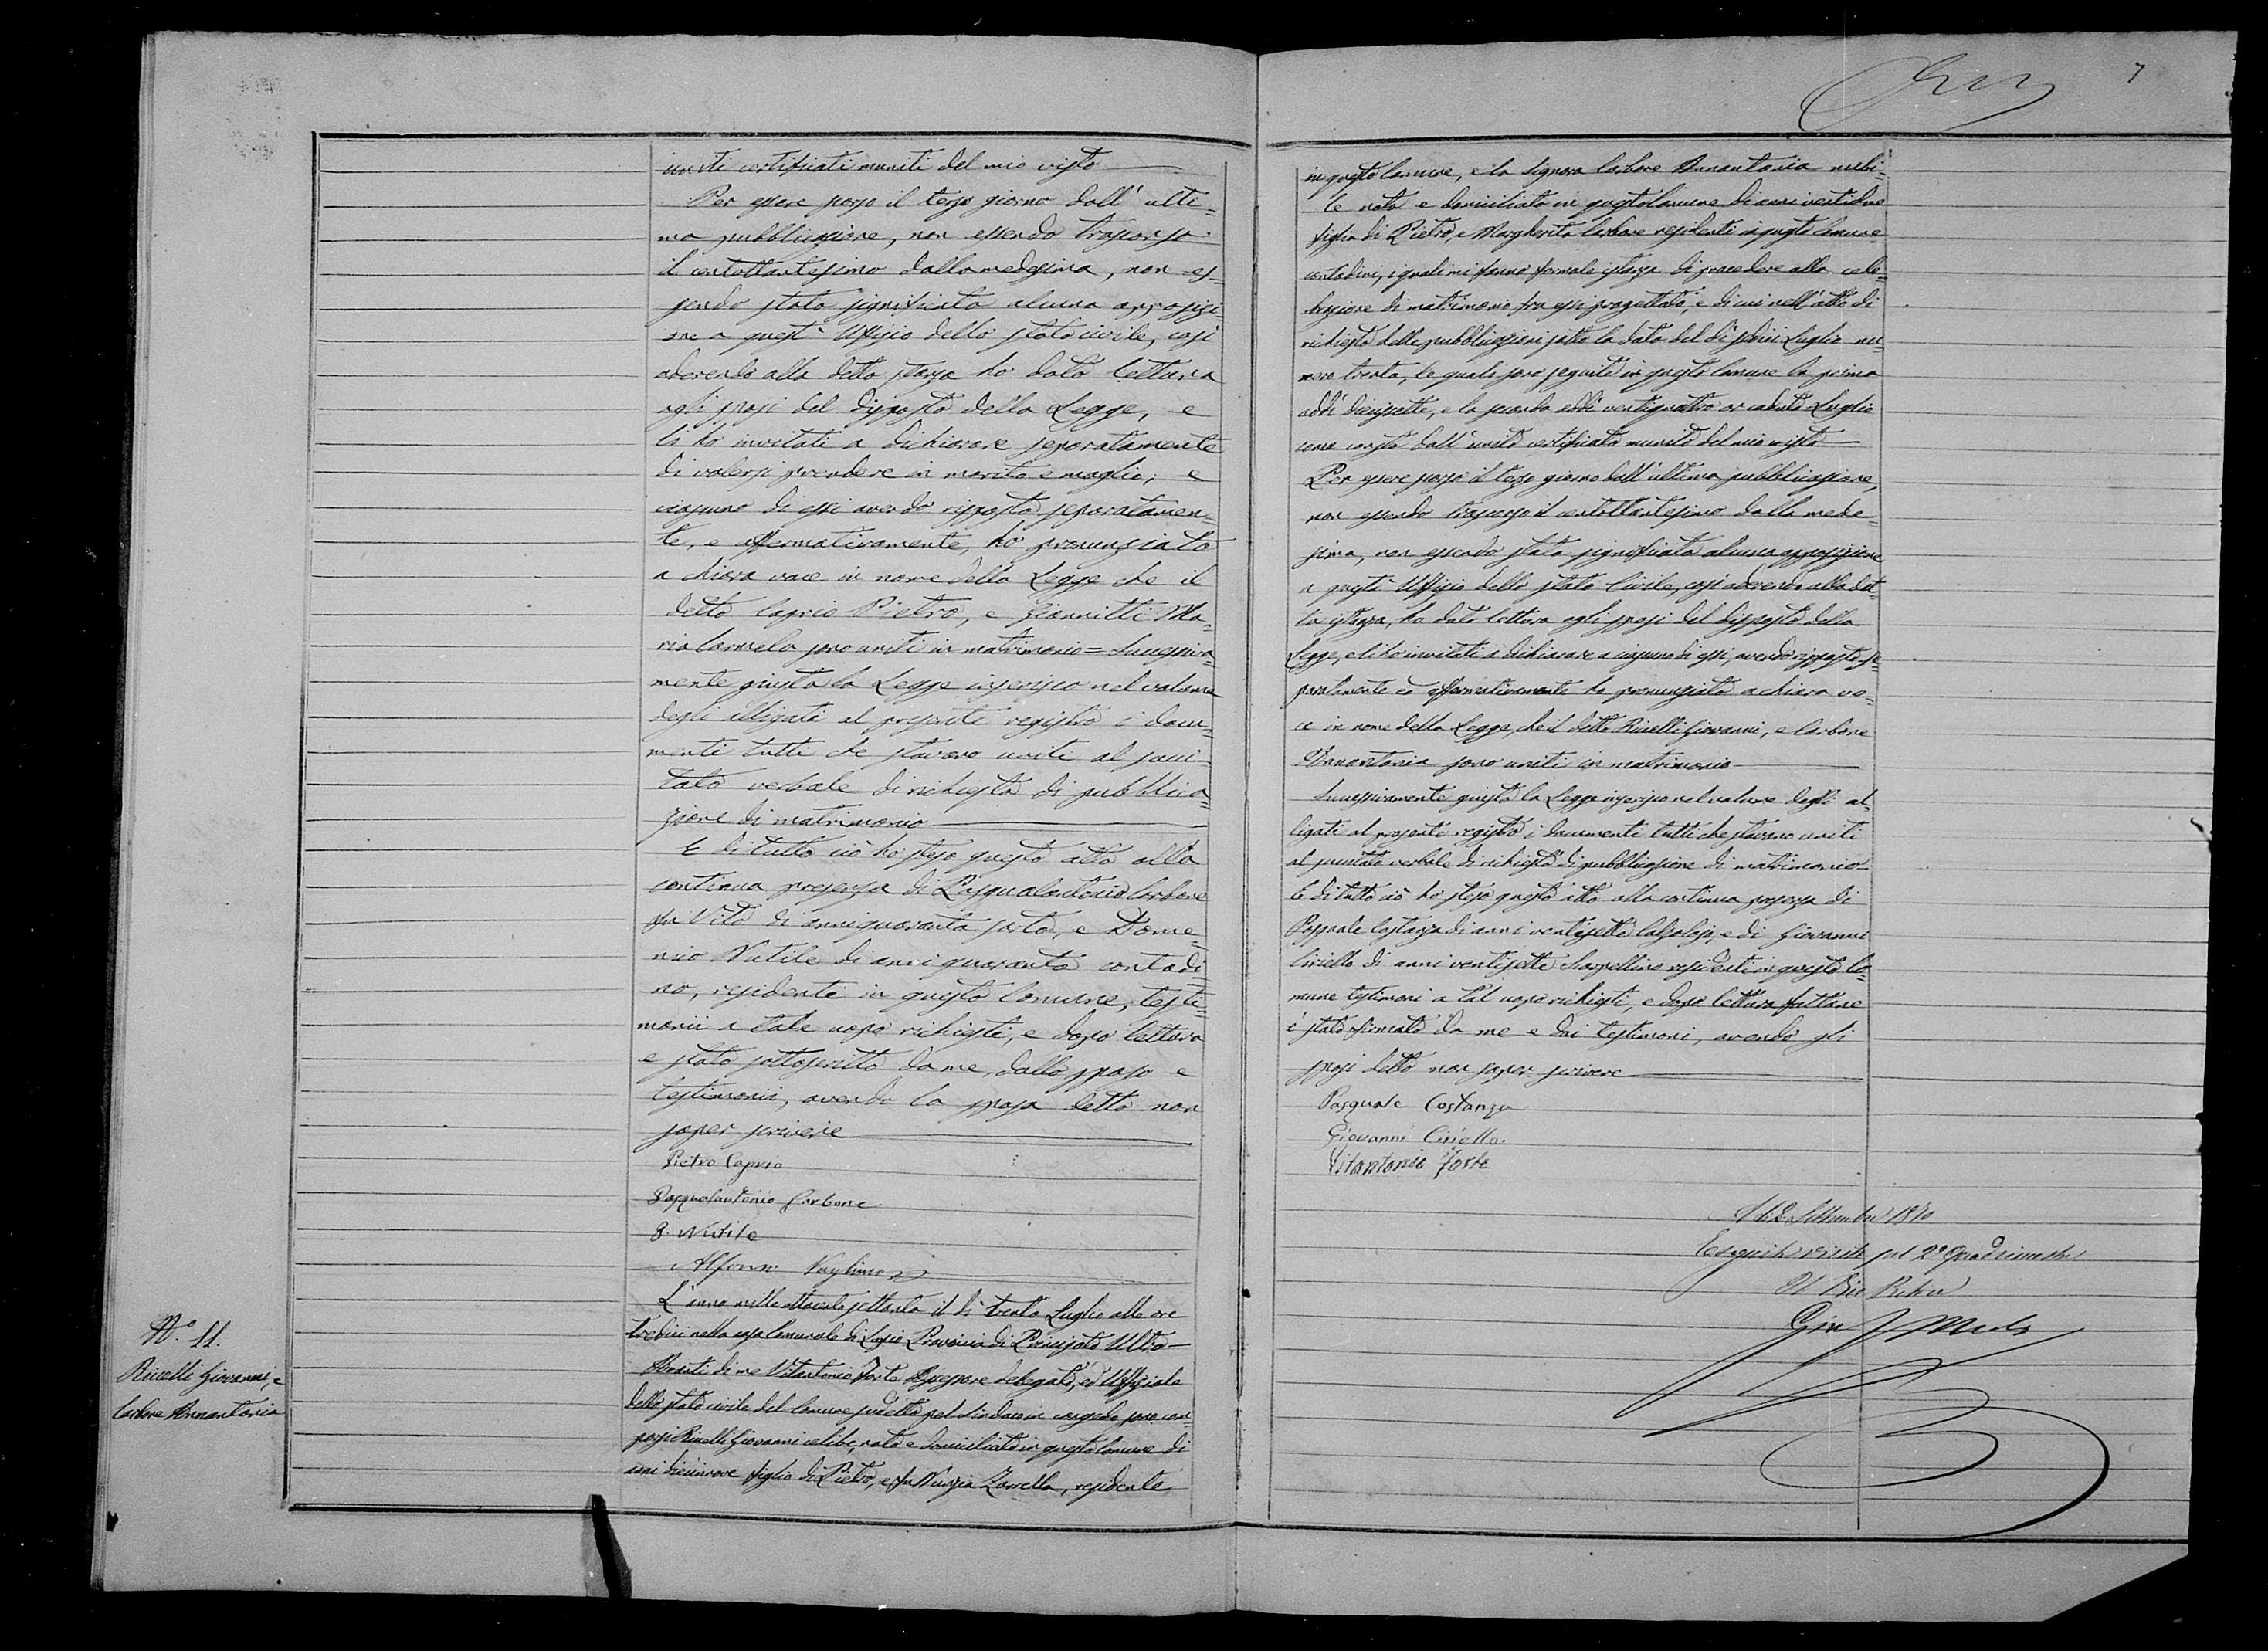 7
uniti certificati muniti del mio visto
Per essere scorso il terzo giorno dall' ulti=
ma pubblicazione, non essendo trascorso
il centottantesimo dalla medesima, non es=
sendo stata significata alcuna opposizi=
one a quest' Uffizio dello stato civile, così
aderendo alla detta stanza ho dato lettura
agli sposi del disposto della Legge, e
li ho invitati a dichiarare separatamente
di volersi prendere in marito e moglie, e
ciascuno di essi avendo risposto separatamen=
te, e affermativamente, ho pronunziato
a chiara voce in nome della Legge che il
detto Caprio Pietro, e Giannitti Ma=
ria Carmela sono uniti in matrimonio = Successiva=
mente giusta la Legge inserisco nel volume
degli alligati al presente registro i docu=
menti tutti che stavano uniti al succi=
tato verbale di richiesta di pubblica=
zione di matrimonio
E di tutto ciò ho steso questo atto alla
continua presenza di Pasqualantonio Carbone
fu Vito di anni quaranta sarto, e Dome=
nico Nutile di anni quaranta contadi=
no, residenti in questo Comune, testi=
monii a tale uopo richiesti, e dopo lettura
e stato sottoscritto da me, dallo sposo e
testimonii, avendo la sposa detto non
saper scrivere
Pietro Caprio
Pasqualantonio Carbone
D. Nutile
Alfonso
N.° 11.
Ricelli Giovanni, e
Carbone Annantonia
L'anno mille ottocento settanta il dì trenta Luglio alle ore
tredici nella casa Comunale di Provincia di Principato Ultra
Avanti di me Vitantonio Forte Assessore delegato, ed Uffiziale
dello stato civile del Comune sudetto pel Sindaco in congedo sono com=
parsi Ricelli Giovanni celibe, nato e domiciliato in questo Comune di
anni diecinnove figlio di Pietro, e fu Nunzia Zarrella, residente
in questo Comune, e la Signora Carbone Annantonia nubi=
le nata e domiciliata in questo Comune di anni ventidue
figlia di Pietro, e Margherita Carbone residenti in questo Comune
contadini, i quali mi fanno formale istanza di procedere alla cele=
brazione di matrimonio fra essi progettato, e di cui nell'atto di
richiesta delle pubblicazioni sotto la data del dì sedici Luglio nu=
mero trenta, le quali sono seguite in questo Comune la prima
addì diecissette, e la seconda addì ventiquattro or caduto Luglio
come consta dall'unito certificato munito del mio visto
Per essere scorso il terzo giorno dall'ultima pubblicazione,
non essendo trascorso il centottantesimo dalla mede=
sima, non essendo stata significata alcuna opposizione
a questo Uffizio dello stato Civile, così aderendo alla det=
ta istanza, ho dato lettura agli sposi del disposto della
Legge, e li ho invitati a dichiarare e ciascuno di essi, avendo risposto se=
paratamente ed affermativamente ho pronunziato a chiara vo=
ce in nome della Legge, che il detto Ricelli Giovanni, e Carbone
Annantonia sono uniti in matrimonio
Successivamente giusta la Legge inserisco nel volume degli al=
ligati al presente registro i documenti tutti che stavano uniti
al succitato verbale di richiesta di pubblicazione di matrimonio
E di tutto ciò ho steso questo atto alla continua presenza di
Pasquale Costanza di anni ventisette Calzolajo, e di Giovanni
Ciriello di anni ventisette Scarpellino residenti in questo Co=
mune testimoni a tal uopo richiesti, e dopo lettura fattane
è stato firmato da me e dai testimoni, avendo gli
sposi detto non saper scrivere
Pasquale Costanza
Giovanni Ciriello
Vitantonio Forte
Settembre 1870
Eseguita visita pel 2° Quadrimestre
Il